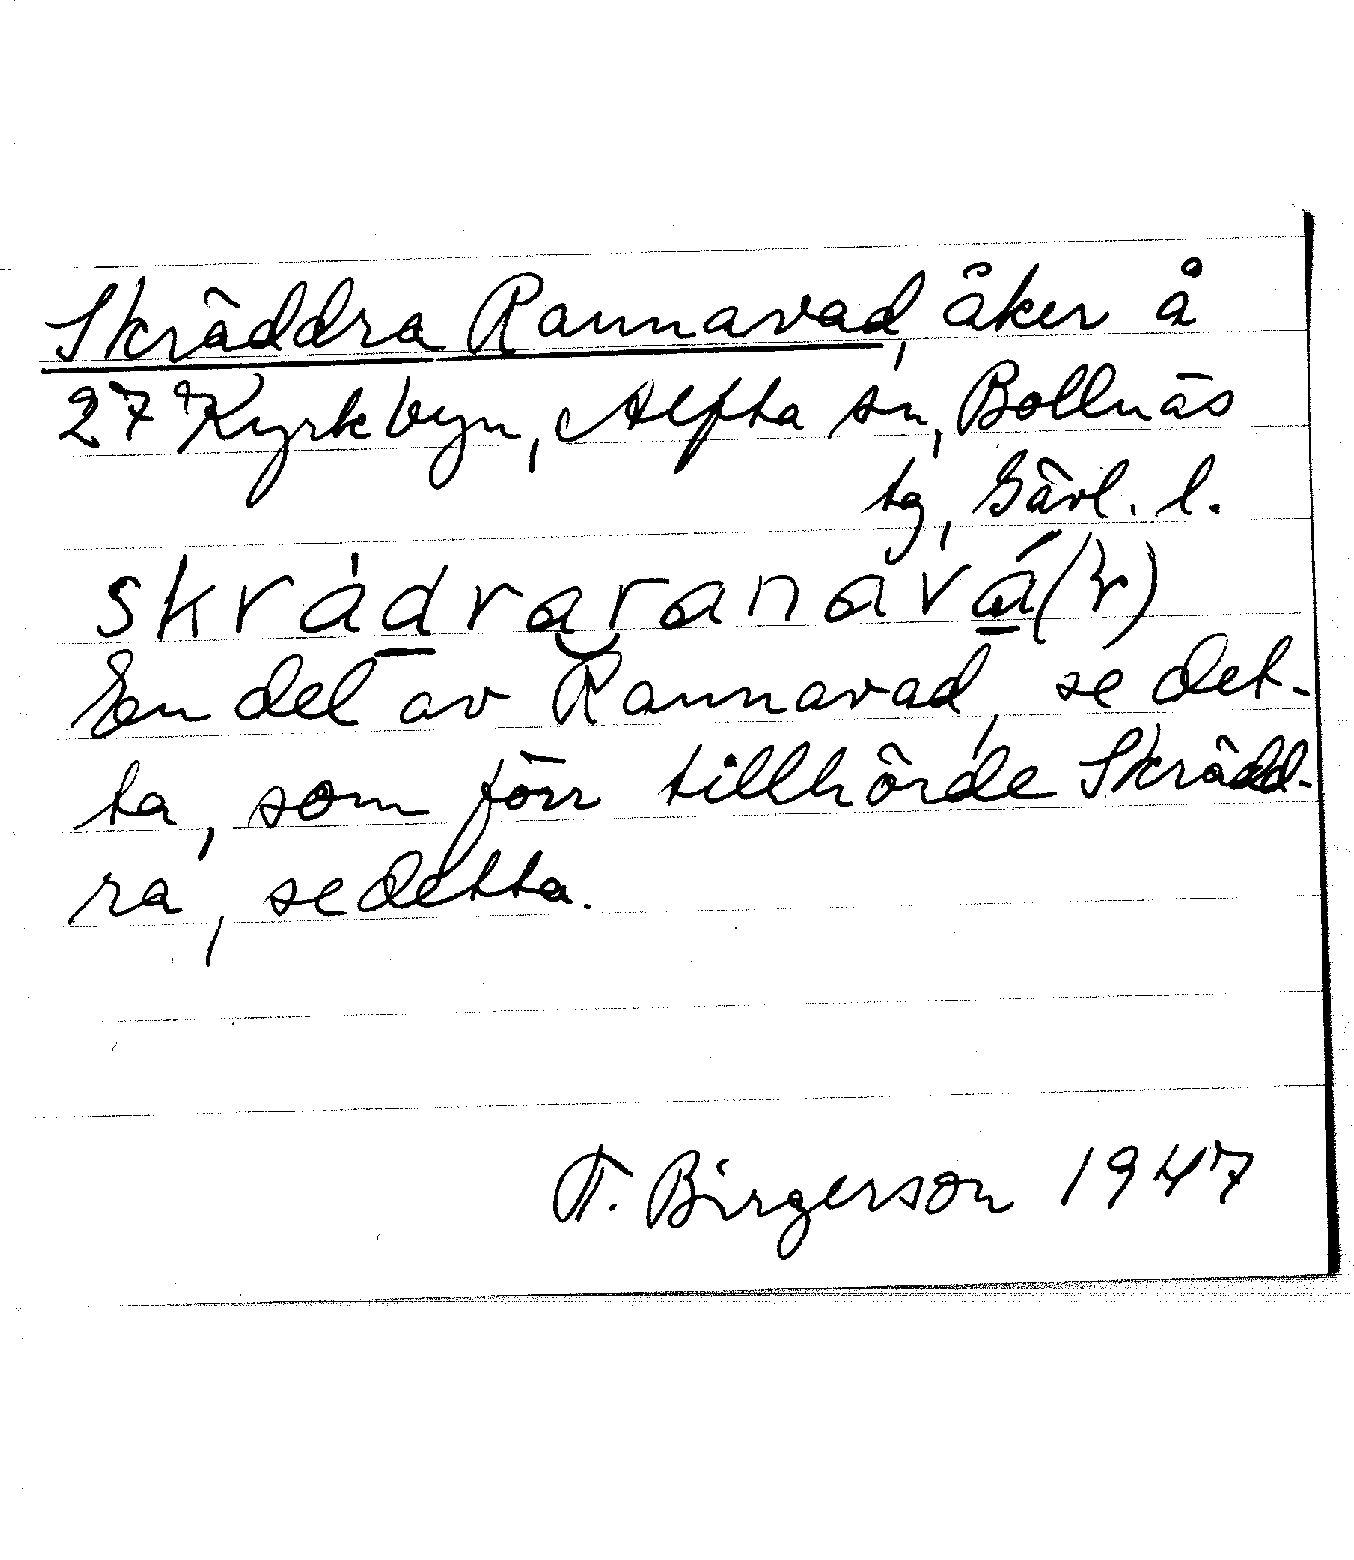 Skräddra Rannavad, åker å
27 Kyrkbyn, Alfta sn, Bollnäs
tg, Gävl. l.
skrádraranavá(r)
En del av Rannavad, se det-
ta, som förr tillhörde Skrädd-
ra, se detta.
T. Birgerson 1947